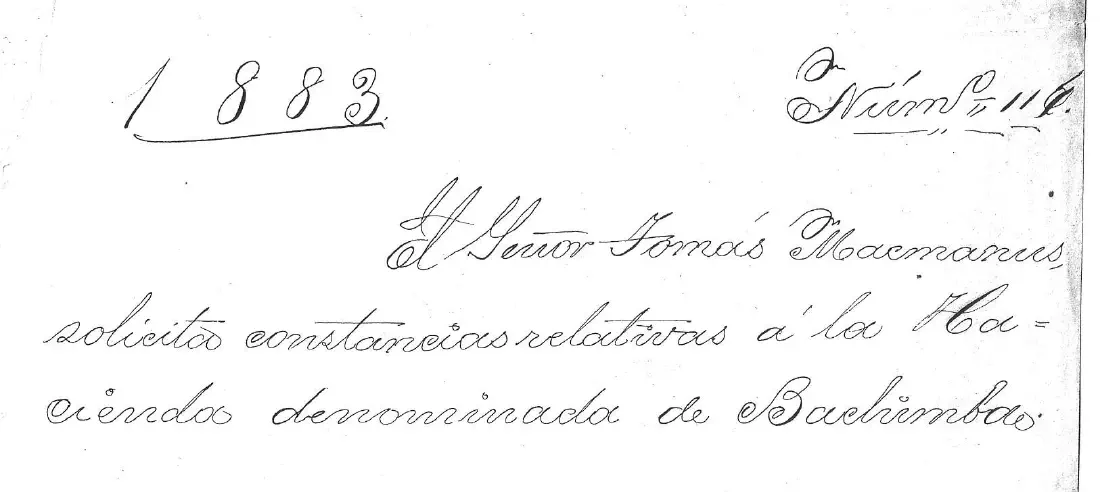 1883. Núm.º 11
El Señor Tomás Macmanus,
solicita constancias relativas á la Ha=
cienda denominada de Bachimba.